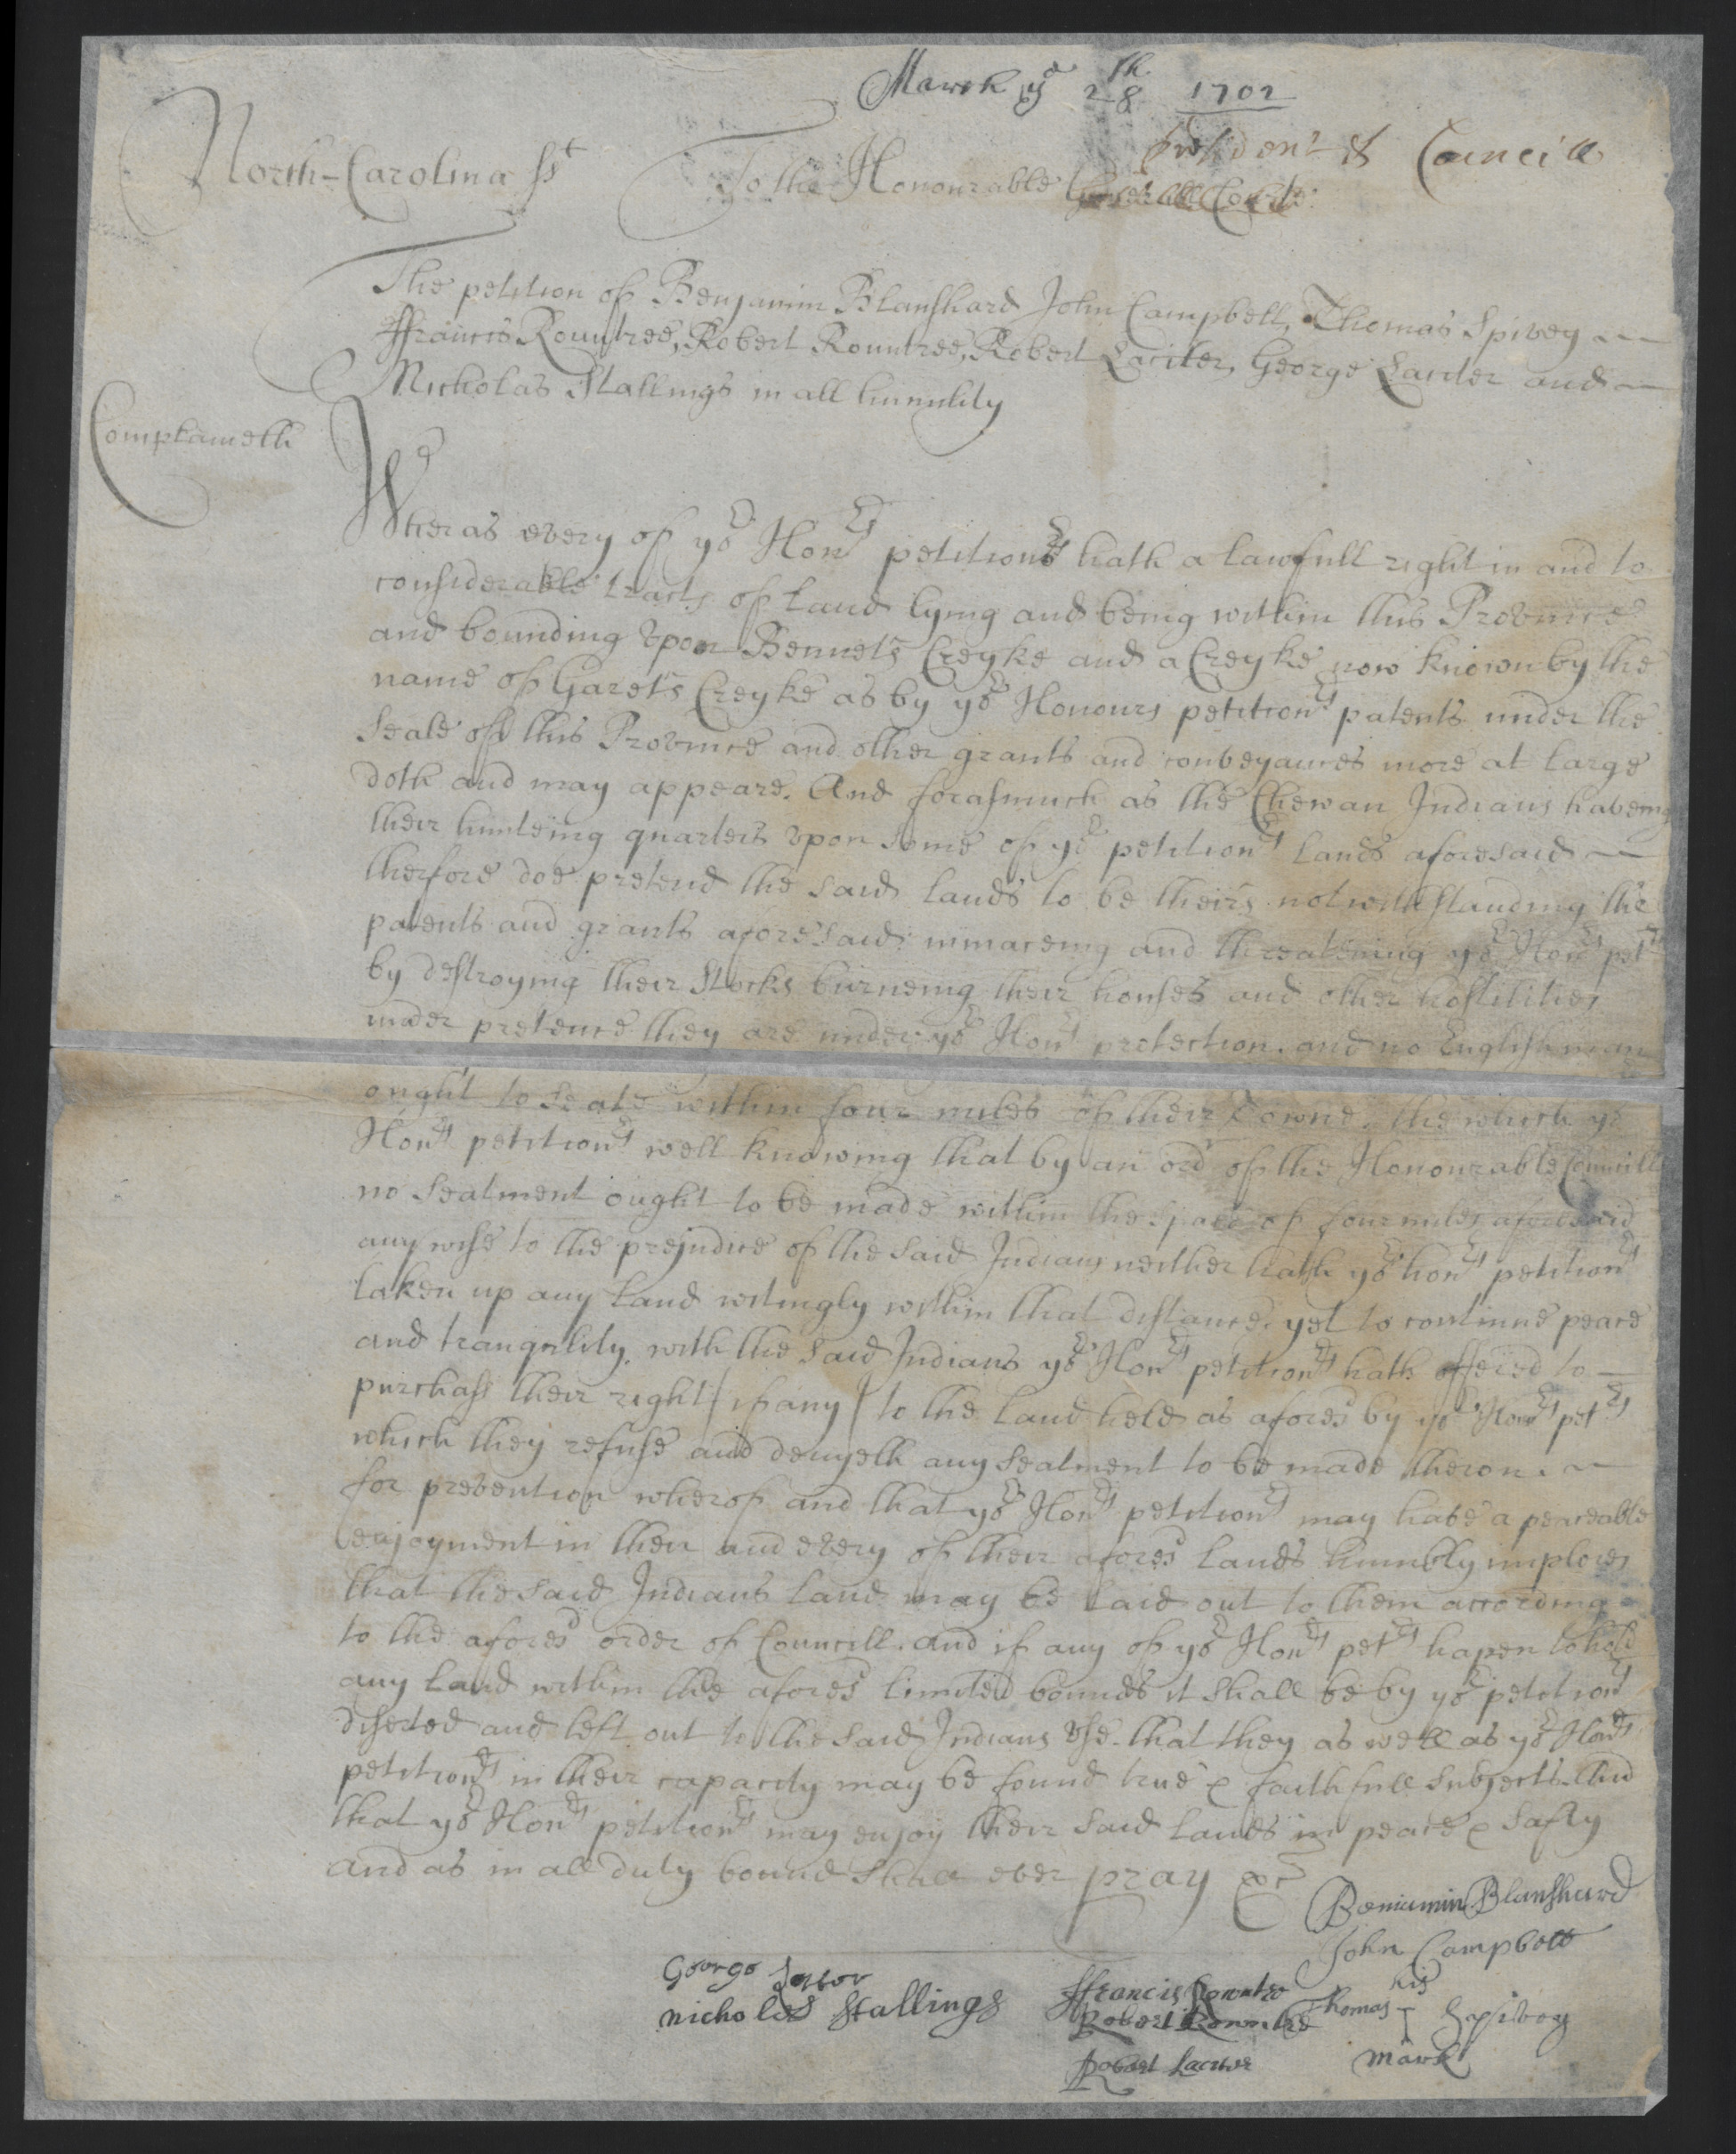 March ye 28th 1702
President & Councill
North-Carolina sst To the Honourable Generall Courte:
The petition of Benjamin Blanshard John Campbell, Thomas Spivey
ffrancis Rountree, Robert Rountree, Robert Laciter, George Laciter and
Nicholas Stallings in all humility
Complaineth
Wheras every of yor Honrs petitionrs hath a lawfull right in and to
considerable tracts of Land lying and being within this Province
and bounding vpon Bennets Creyke and a Creyke now known by the
name of Garets Creyke as by yor Honours petitionrs patents under the
Seale of this Province and other grants and conveyances more at large
doth and may appeare. And forasmuch as the Chewan Indians haveing
their hunteing quarters vpon some of yor petitionrs Lands aforesaid
therfore doe pretend the said lands to be theirs notwithstanding the
patents and grants aforesaid: minaceing and threatening yor Honrs petrs
by destroying their Stocks burneing their houses and other hostilities
under pretence they are under yor Honrs protection. and no English man
ought to seate within four miles of their Towne. the which yr
Honrs petitionrs well knowing that by an ordr of the Honourable Councill
no seatment ought to be made within the space of four miles aforesaid
any wise to the prejudice of the said Indians neither hath yor honrs petitionrs
taken up any Land witingly within that distance. yet to continue peace
and tranquility. with the said Indians yor Honrs petitionrs hath offered to
purchass their right (if any) to the Land held as aforesd by yor Honrs petrs
which they refuse and denyeth any seatment to be made theron.
for prevention wherof and that yor Honrs petitionrs may have a peaceable
enjoyment in their and every of their aforesd Lands humbly implores
that the said Indians Land may be Laid out to them according
to the aforesd order of Councell. and if any of yor Honrs petrs hapen to hold
any Land within the aforesd limited bounds it shall be by yor petitionrs
diserted and left out to the said Indians vse. that they as well as yor Honrs
petitionrs in their capacity may be found true & faithfull subjects. And
that yor Honrs petitionrs may enjoy their said Lands in peace & safty
and as in all duty bound shall ever pray &c
Beniamin Blanshard
John Campbell
George
nicholes Stallings
ffrancis Rowntre
Robert Rowntre
Robert Laciter
his
Thomas T Spivey
mark